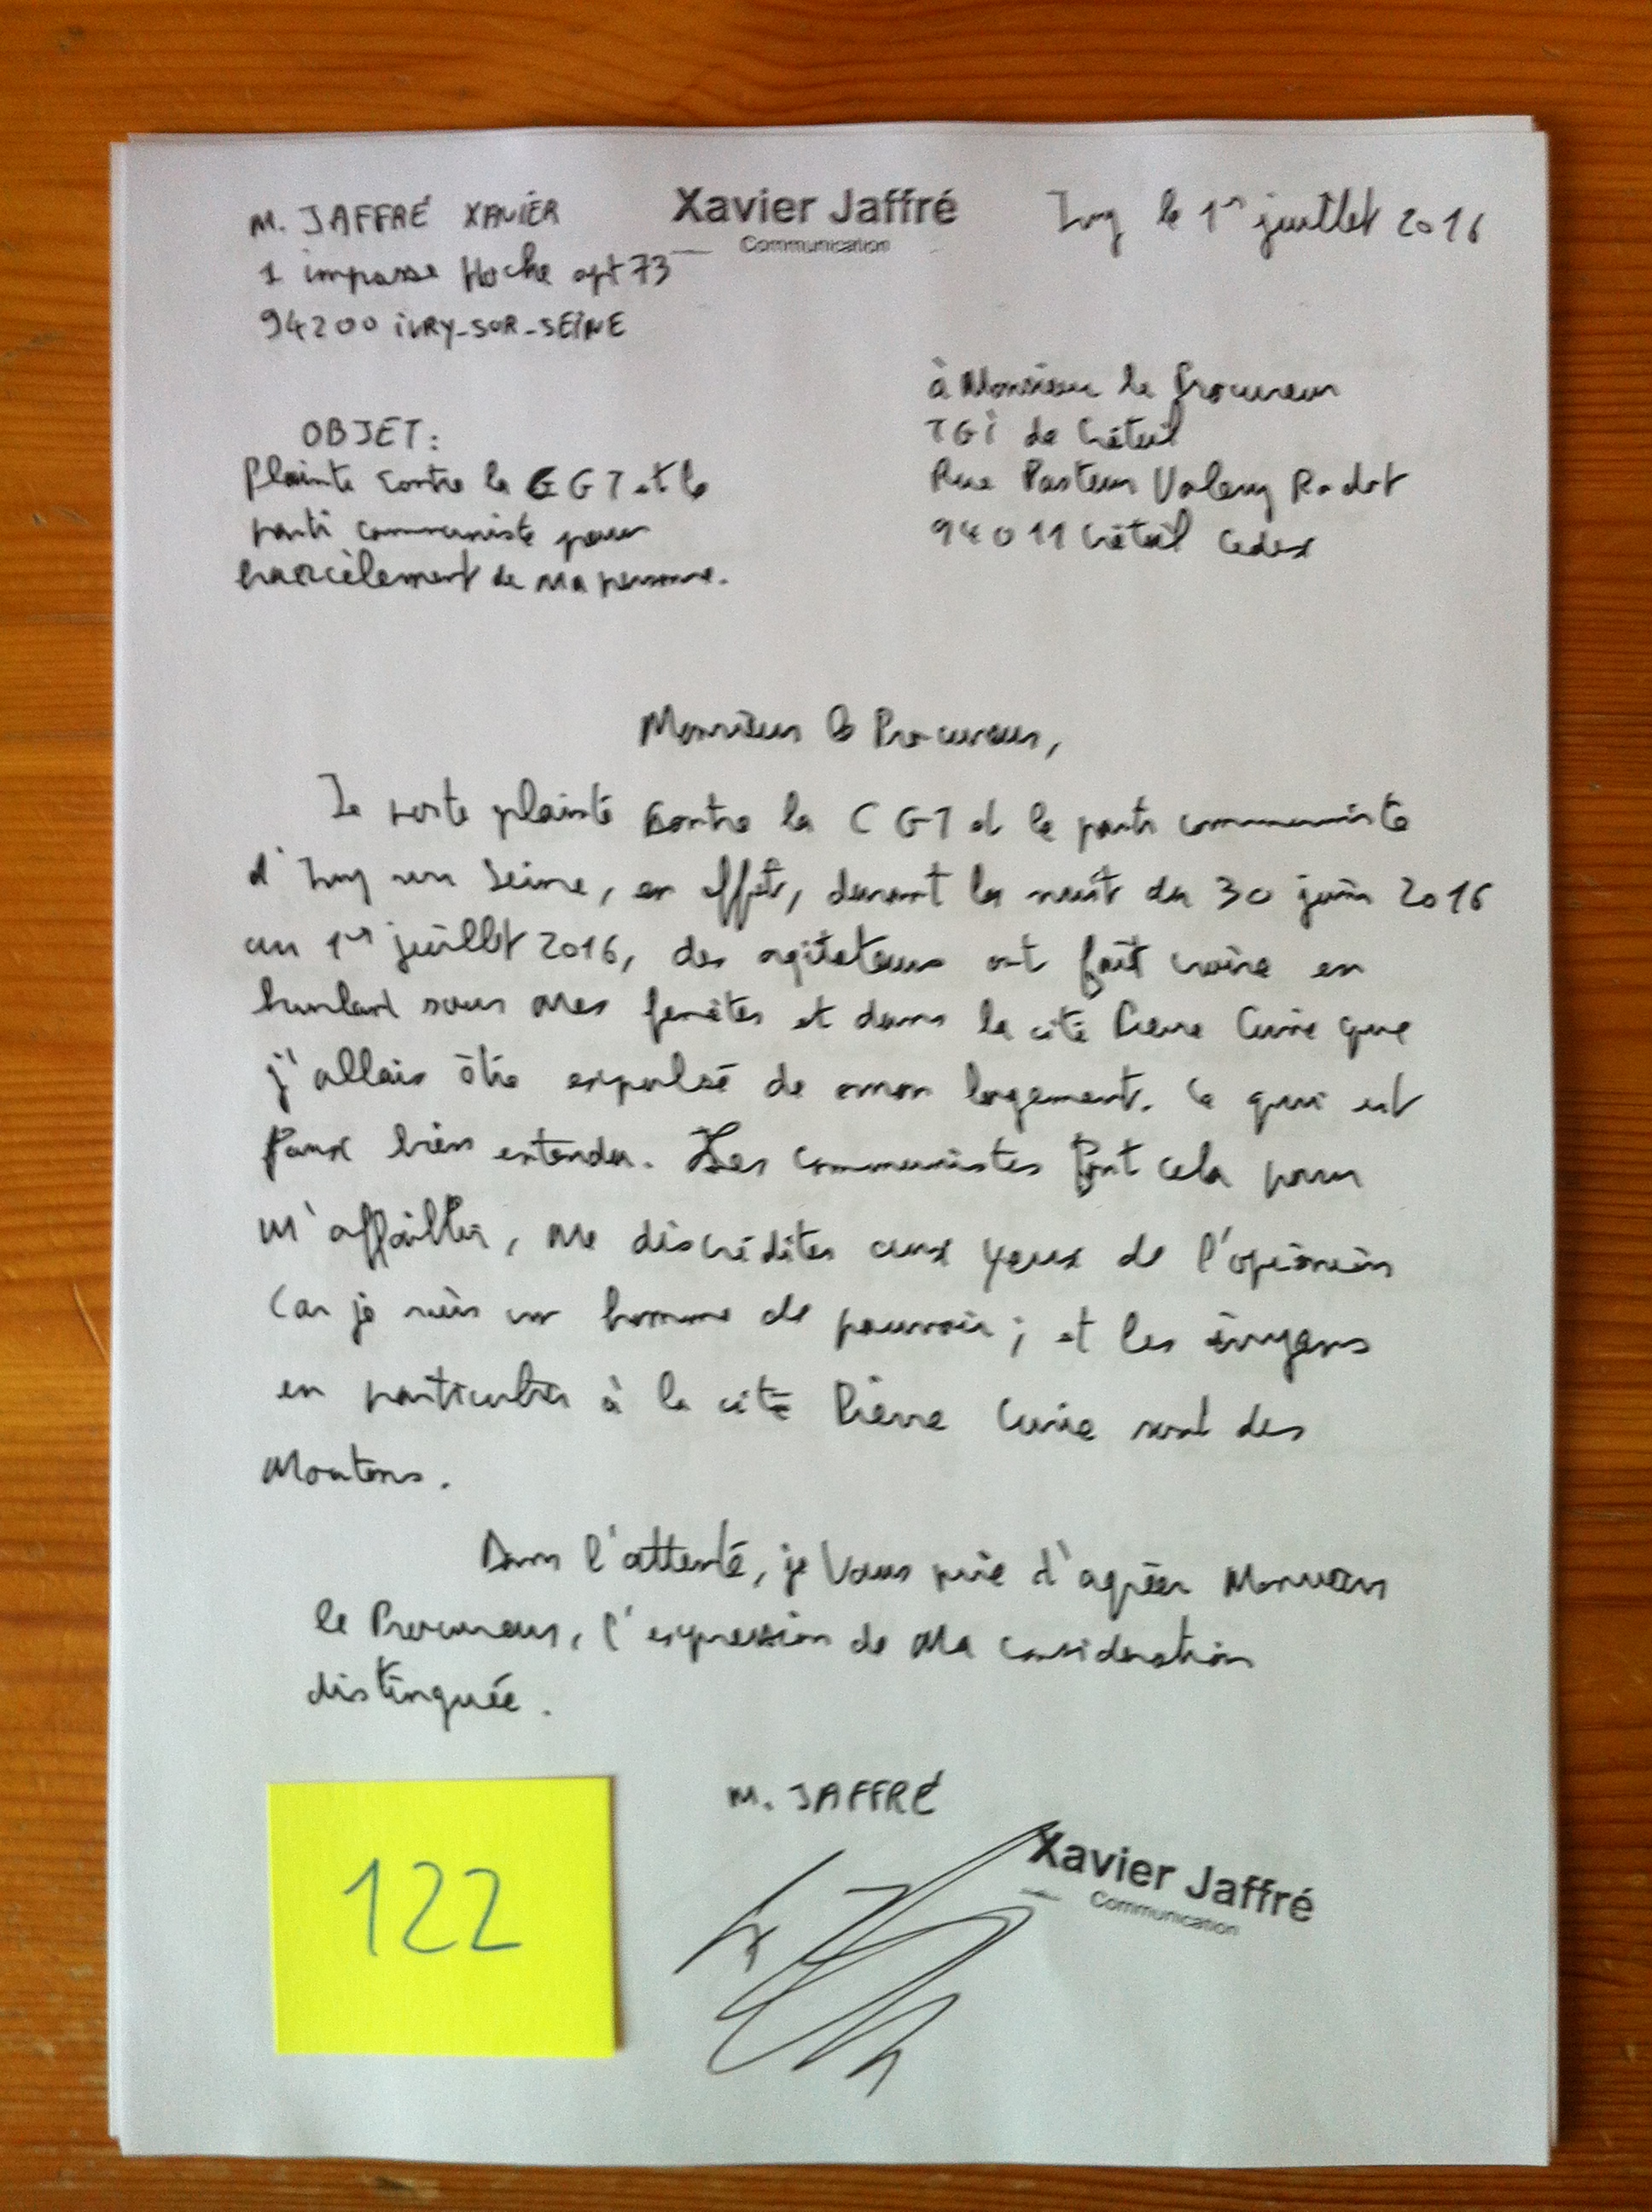 M. JAFFRÉ XAVIER
Xavier Jaffré
Communication
Ivry le 1er juillet 2016
1 impasse Hoche apt 73
94200 iVRY-SUR-SEiNE
à Monsieur le Procureur
TGi de Créteil
Rue Pasteur Valery Radot
94011 Créteil Cedex
OBJET:
Plainte contre la CGT et le
parti communiste pour
harcèlement de ma personne.
Monsieur le Procureur,
Je porte plainte contre la CGT et le parti communiste
d'Ivry sur Seine, en effet, durant la nuit du 30 juin 2016
au 1er juillet 2016, des agitateurs ont fait croire en
hurlant sous mes fenêtes et dans la cité Pierre Curie que
j'allais être expulsé de mon logement. Ce qui est
faux bien entendu. Les communistes font cela pour
m'affaiblir, me discréditer aux yeux de l'opinion
car je suis un homme de pouvoir ; et les ivryens
en particulier à la cité Pierre Curie sont des
moutons.
Dans l'attente, je vous prie d'agréer Monsieur
le Procureur, l'expression de ma considération
distinguée.
M. JAFFRÉ
Xavier Jaffré
Communication
122